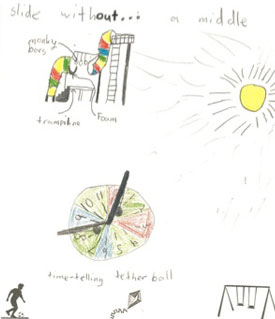 slide without... a middle
monky
bars
trampoline Foam
time-telling tether ball